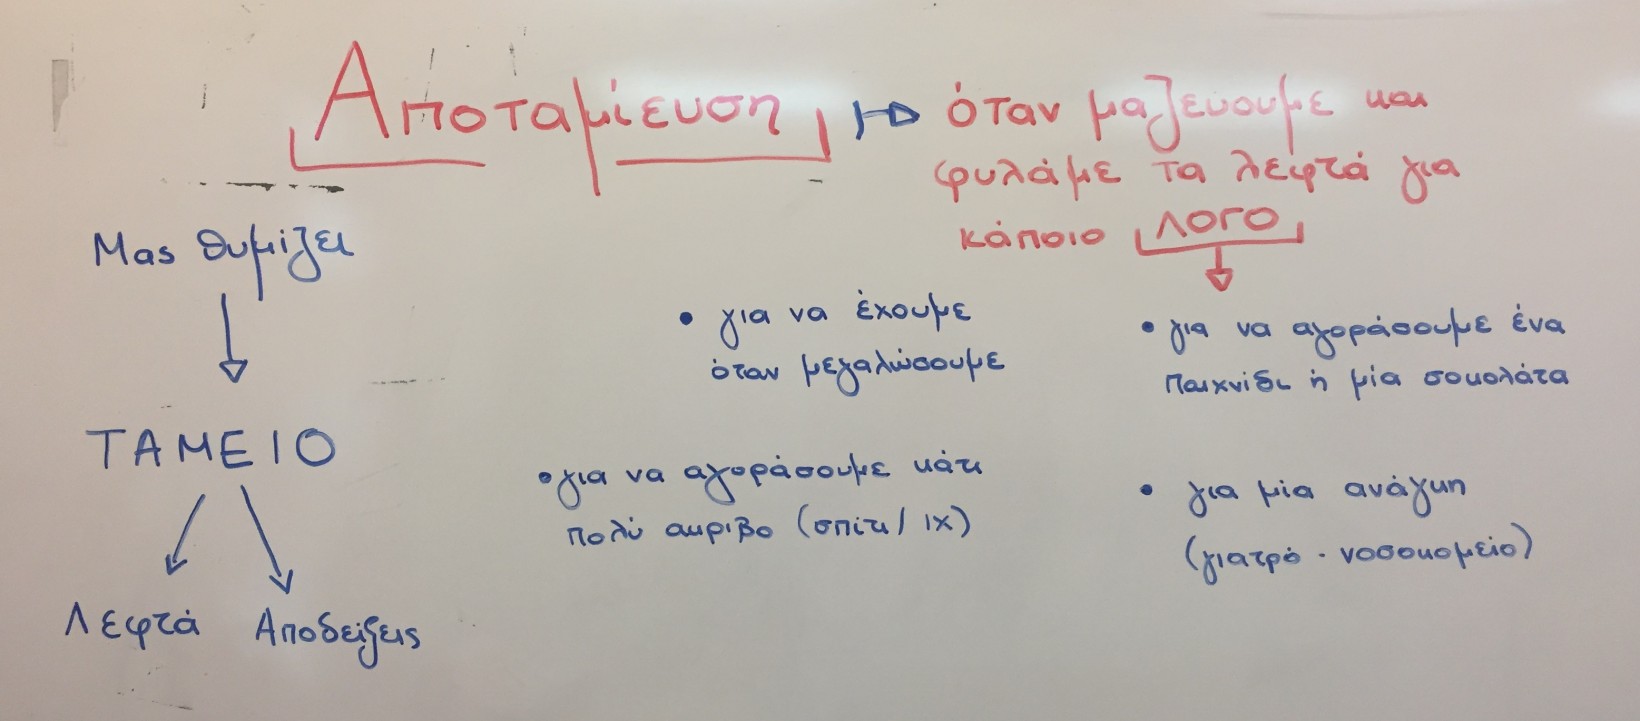 Αποταμίευση
όταν μαζεύουμε και
φυλάμε τα λεφτά για
κάποιο ΛΟΓΟ
Μας θυμίζει
ΤΑΜΕΙΟ
Λεφτά Αποδείξεις
• για να έχουμε
όταν μεγαλώσουμε
• για να αγοράσουμε ένα
παιχνίδι ή μία σοκολάτα
• για να αγοράσουμε κάτι
πολύ ακριβο (σπίτι/ ΙΧ)
• για μία ανάγκη
(γιατρό - νοσοκομείο)